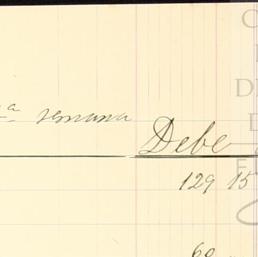 ª semana
Debe
129 15
60